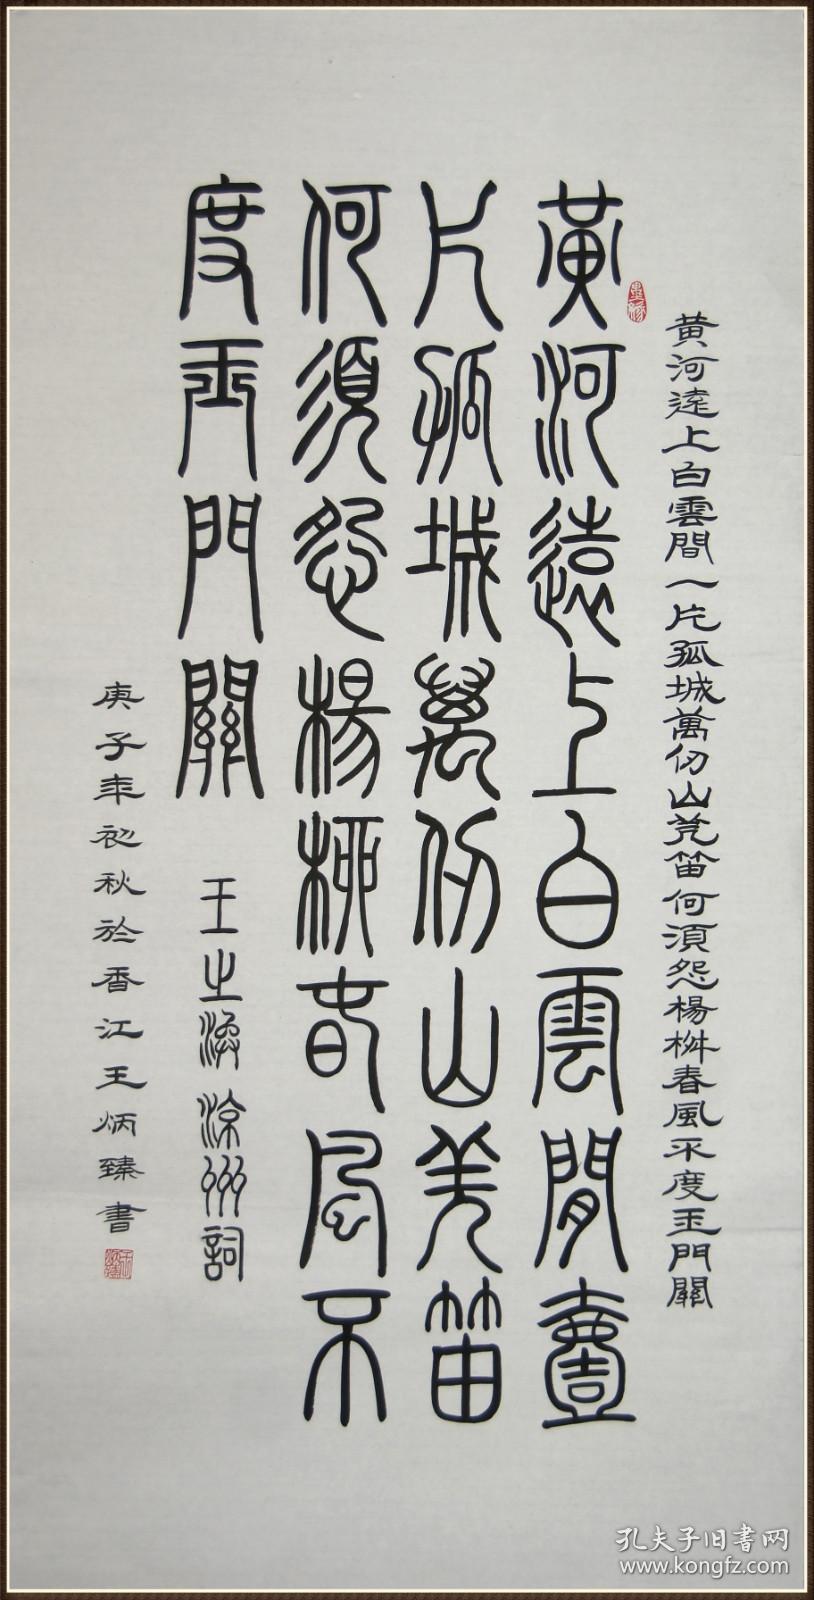 黄河遠上白雲間一片孤城萬仞山羌笛何須怨楊柳春風不度玉門關
黃河遠上白雲閒壹
片孤城萬仞山羌笛
何須怨楊柳春風不
度玉門關
王之渙涼州詞
庚子年初秋於香江王炳臻書
孔夫子旧书网
www.kongfz.com